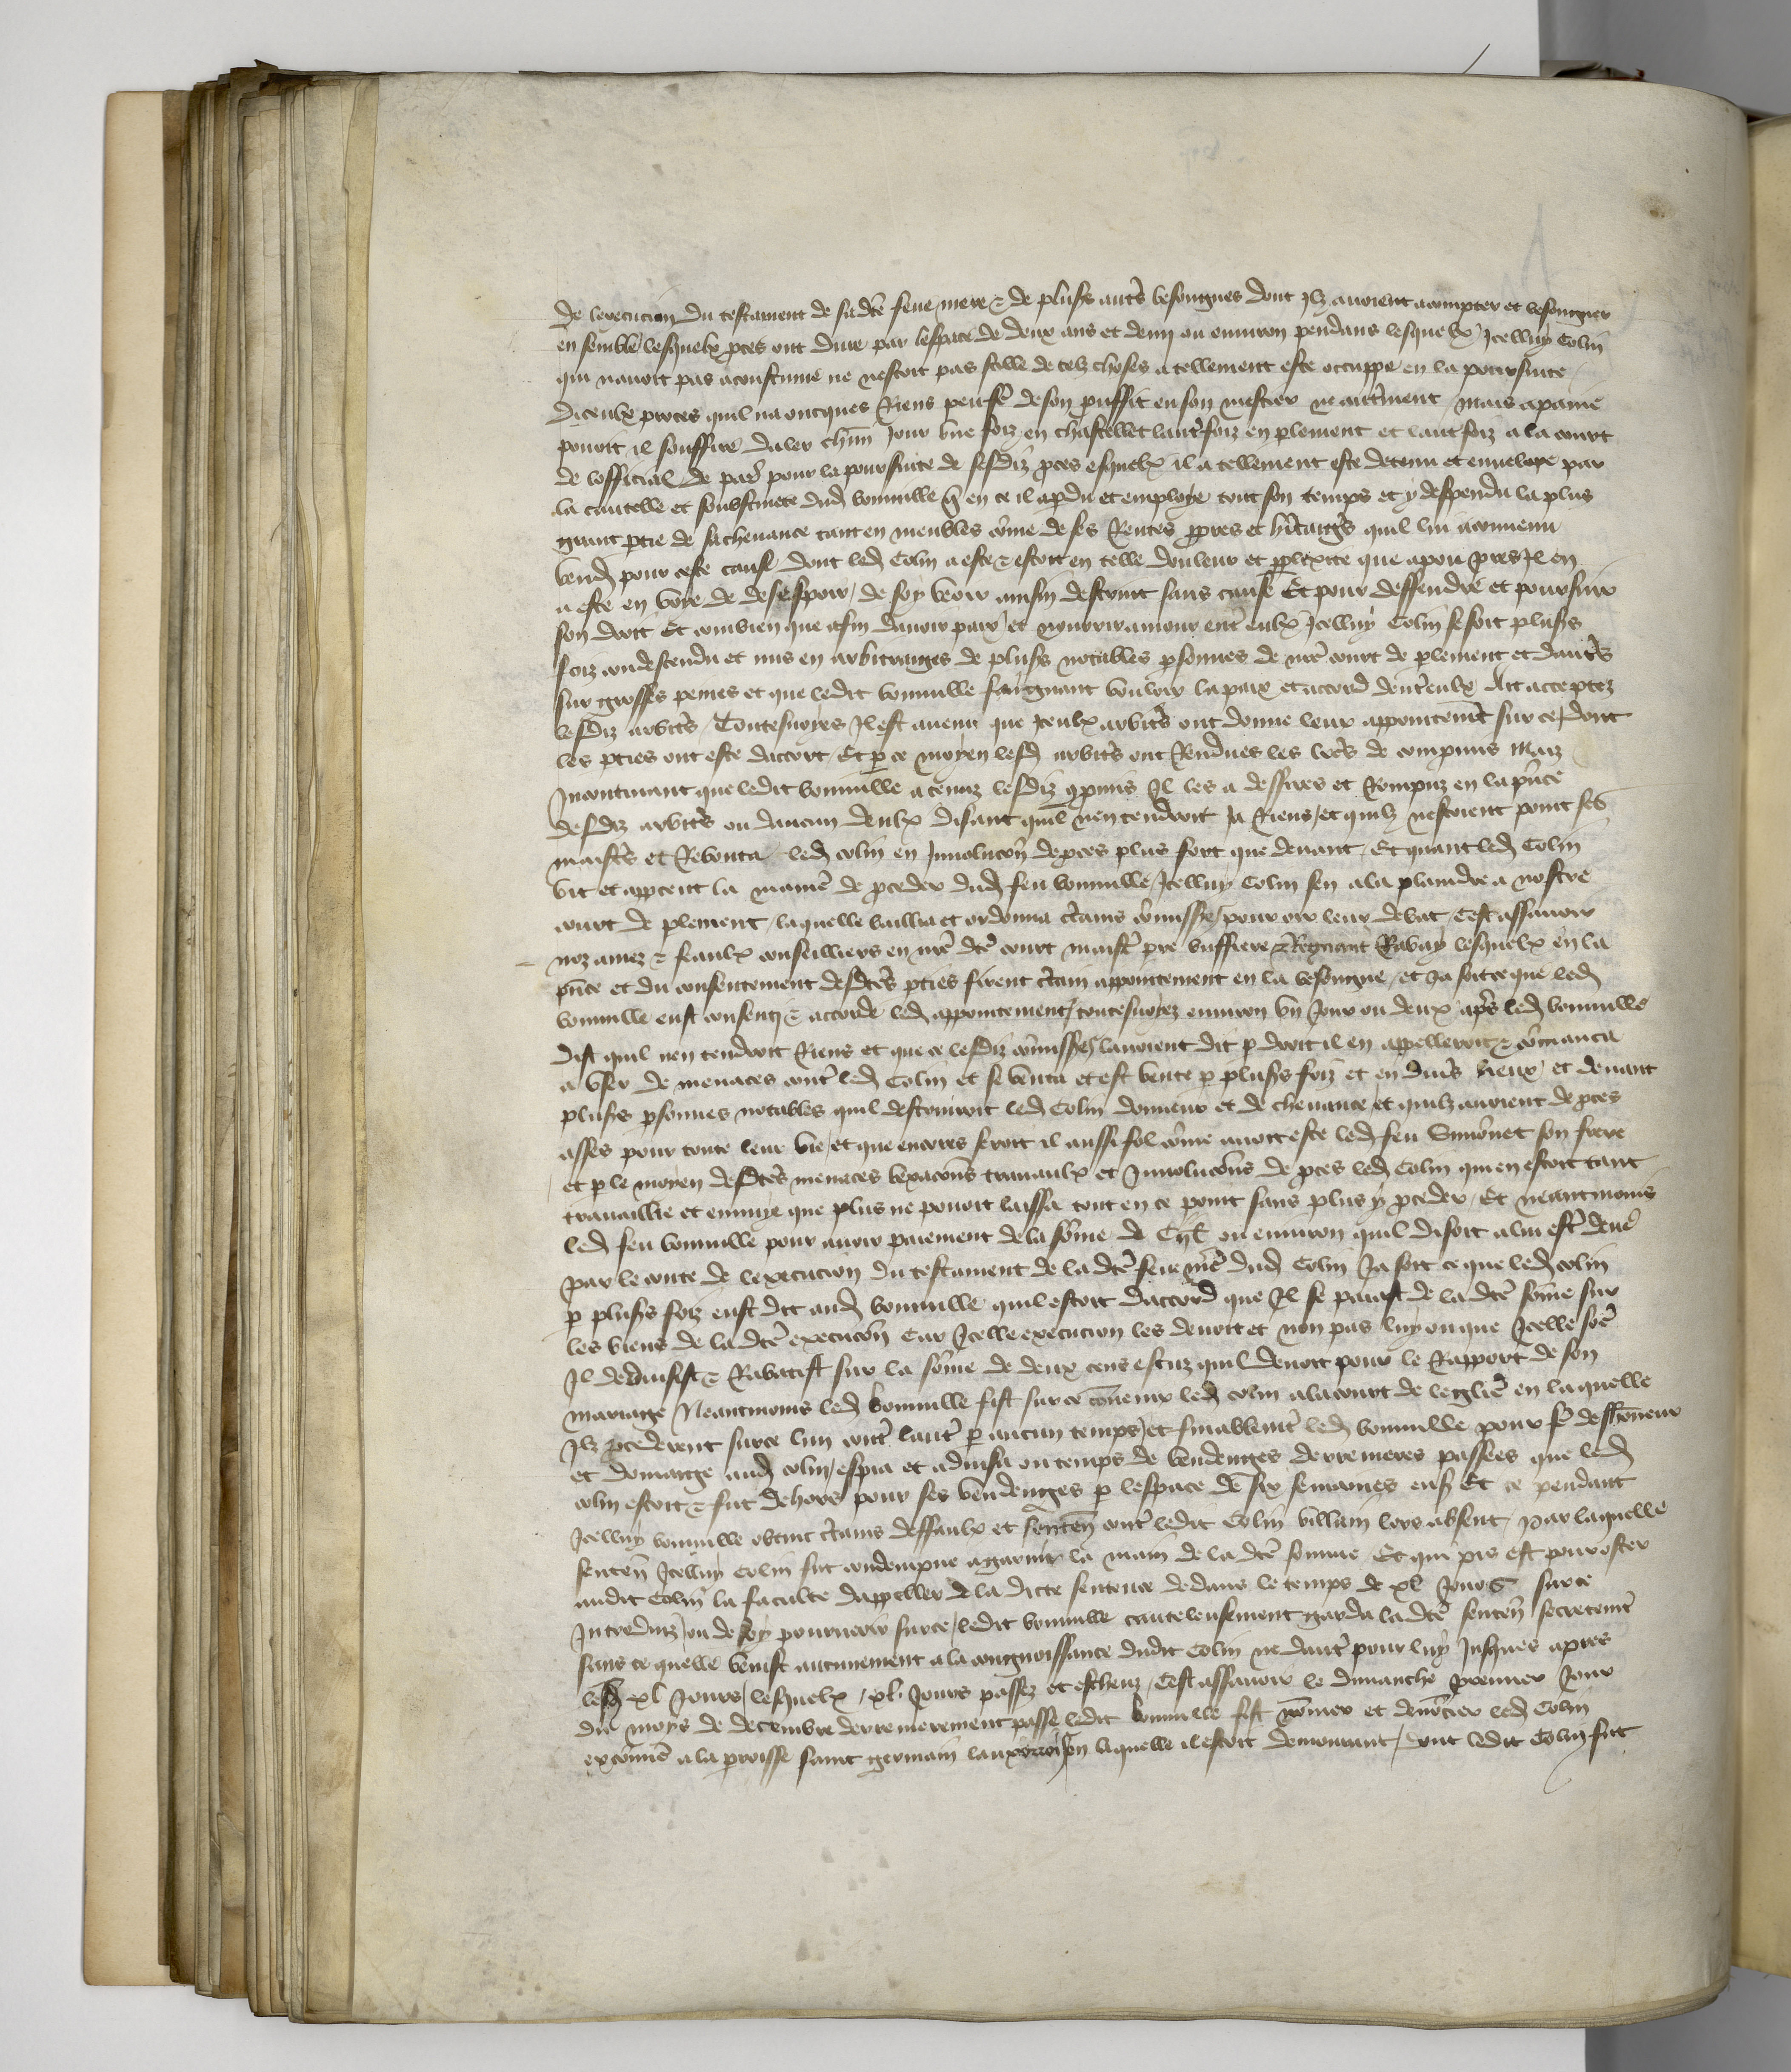 de lexecucion du testament de sadte feue mere & de plusrs autrs besongnes dont Ilz auoient acompter et besongner
en semble lesquelx pces ont dure par lespace de deux ans et demi ou enuiron pendans lesquelx Icelluy Colin
qui nauoit pas acoustume ne nestoit pas stille de telz choses a tellement este occuppe en la poursuite
diceulx proces quil na oncques Riens pense de son prouffit en son mestier ne autrment mais apaine
pouoit il souffire daler chun Jour vne foiz en chastellet lautr foiz en plement et laut foiz a la court
de lofficial de par pour la poursuite de sesdiz pces esquelx il a tellement este detenu et enuelope par
la cautelle et soubstinete dud bonuille q en ce il a pdu et emploie tout son temps et y despendu la plus
grant ptie de sa cheuance tant en meubles come de ses Rentes ppres et hitaigs quil lui a conuenu
vend pour ceste cause dont led Colin a este & estoit en telle douleur et pplexite que a pou pres Il en
a este en voie de desespoir de soy veoir ainsin destruit sans cause Et pour deffendre et poursuir
son droit Et combien que afin dauoir paix et nourrir amour entr eulx Icelluy Colin se soit plusrs
foiz condescendu et mis en arbitraiges de plusrs notables psonnes de nre court de plement et dautrs
sur grosses peines et que ledit bonuille faingnant vouloir la paix et accord dentreulx Ait acceptez
lesdiz arbitrs Toutesuoies Il est auenu que Iceulx arbitrs ont donne leur appoinctemt sur ce dont
les pties ont este daccort Et p ce moyen lesd arbitrs ont Rendues les lectrs de compmis Maiz
Incontinant que ledit bonuille a tenuz lesdiz cpmis Il les a deffirez et Rompuz en la pnce
desdiz arbitrs ou daucun deulx disant quil nen tendroit Ja Riens et quilz nestoient point ses
maistrs et Rebouta led colin en Inuolucon de pces plus fort que deuant Et quant led Colin
vit et appceut la manie de pceder dud feu bonuille Icelluy Colin sen ala plaindre a nostre
court de plement laquelle bailla et ordonna ctains comissres pour oir leur debat Cest assauoir
noz amez & feaulx conseilliers en nre dte court maistr pre buffiere & Regnaut Rabay lesquelx en la
pnce et du consentement desdtes pties firent ctain appointement en la besongne et Ja soit ce que led
bonuille eust consenti & accorde led appointement toutesuoiez enuiron vn Jour ou deux aprs led bonuille
dist quil nen tendroit Riens et que ce lesdiz comissres lauoient dit p droit il en appelleroit & comanca
a vser de menaces contr led Colin et se venta et est vente p plusrs foiz et en diurs lieux et deuant
plusrs psonnes notables quil destruiroit led Colin donneur et de cheuance et quilz auoient de pces
asses pour toute leur vie et que encores seroit il aussi fol come auoit este led feu Simonet son frere
et p le moyen desdtes menaces vexacons trauaulx et Inuolucons de pces led Colin qui en estoit tant
trauaillie et ennuye que plus ne pouoit laissa tout en ce point sans plus y pceder Et neantmoins
led feu bonuille pour auoir paiement de la some de ou enuiron quil disoit a lui estr deue
par le conte de lexecucion du testament de la dte feue me dud Colin Ja soit ce que led colin
p plusrs foiz eust dit aud bonuille quil estoit daccord que Il se paiast de la dte some sur
les biens de la dte execucon Car Icelle execucion les deuoit et non pas luy ou que Icelle soe
Il deduisist & Rabatist sur la some de deux cens escuz quil deuoit pour le Rapport de son
mariage Neantmoins led bonuille fist sur ce conuenir led colin a la court de leglise en laquelle
Ilz pcederent sur ce lun contr lautr p aucun temps et finablemt led bonuille pour fe deshonneur
et domaige aud colin espia et aduisa ou temps de vendenges derrenieres passees que led
colin estoit & fut dehors pour ses vendenges p lespace de six semaines ensi Et ce pendant
Icelluy bonuille obtint ctains deffaulx et senten contr ledit Colin villain lors absent par laquelle
senten Icelluy Colin fut condempne a garnir la main de la dte somme Et qui pis est pour oster
audit Colin la faculte dappeller de la dicte sentence dedans le temps de xl Jours sur ce
Introduiz ou de soy pourueoir sur ce ledit bonuille cauteleusement garda la dte senten secretemt
sans ce quelle venist aucunement a la congnoissance dudit Colin ne dautr pour luy Jusques apres
lesd xl Jours lesquelx xl Jours passez et escheuz Cest assauoir le dimanche premier Jour
du moys de decembre derrenierement passe ledit bonuille fist nomer et denocier led Colin
excomē a la proisse saint germain lauxerrois en laquelle il estoit demourant dont ledit Colin fut